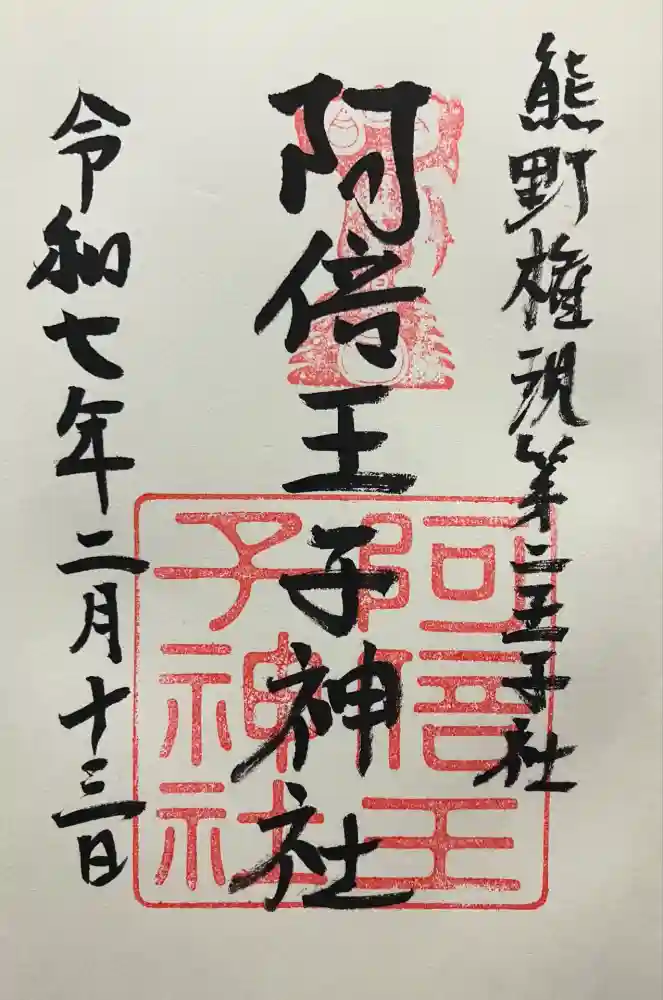 熊野権現第二王子社
阿倍王子神社
令和七年二月十三日
阿倍王子神社